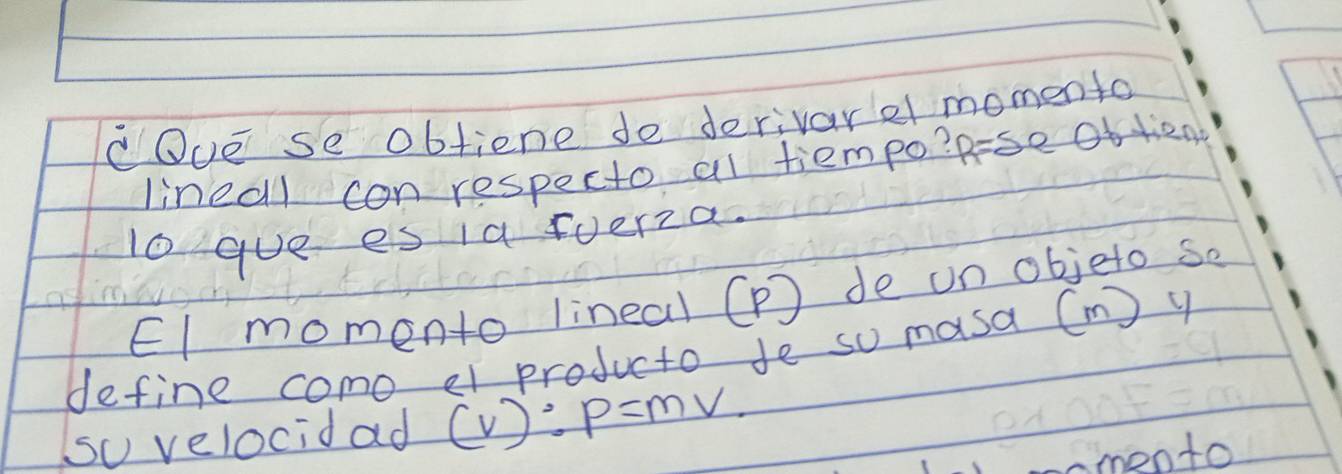 ¿Qué se obtiene de derivar el momento
lineal con respecto al tiempo? R=Se Obtiene
lo que es la fuerza.
El momento lineal (p) de un objeto se
define como el producto de su masa (m) y
su velocidad (v): p=mv.
momento